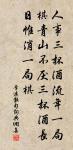 人事三杯酒流年一局
棋青山不厭三杯酒長
日惟消一局棋